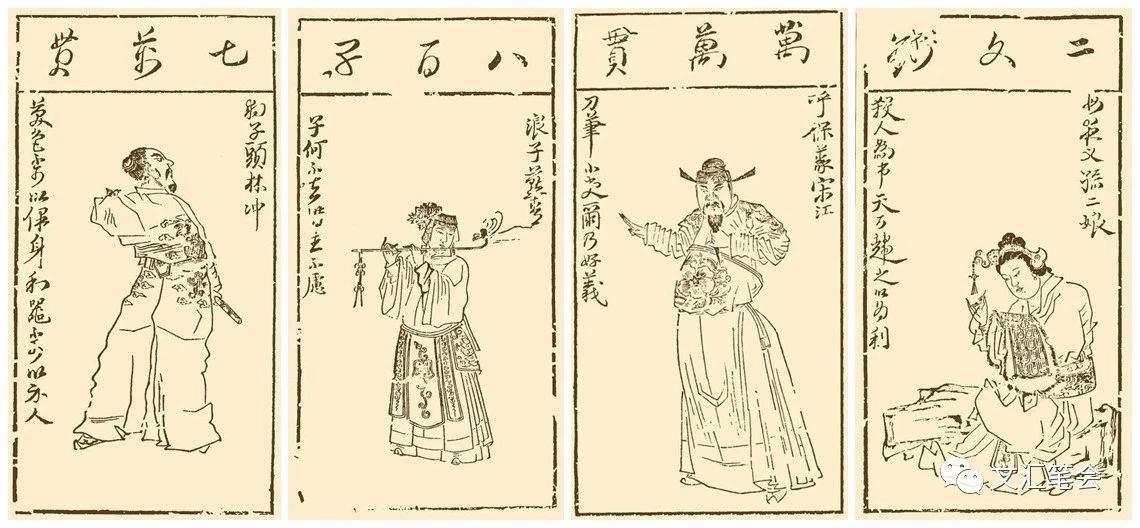 七萬貫
豹子頭林冲
美色不可以保身利器不可以示人
八百子
浪子燕青
子何不去
萬萬貫
呼保義宋江
刀筆小吏爾乃好義
二文錢
母夜叉孫二娘
殺人為市天下趨之以為利
文汇笔会